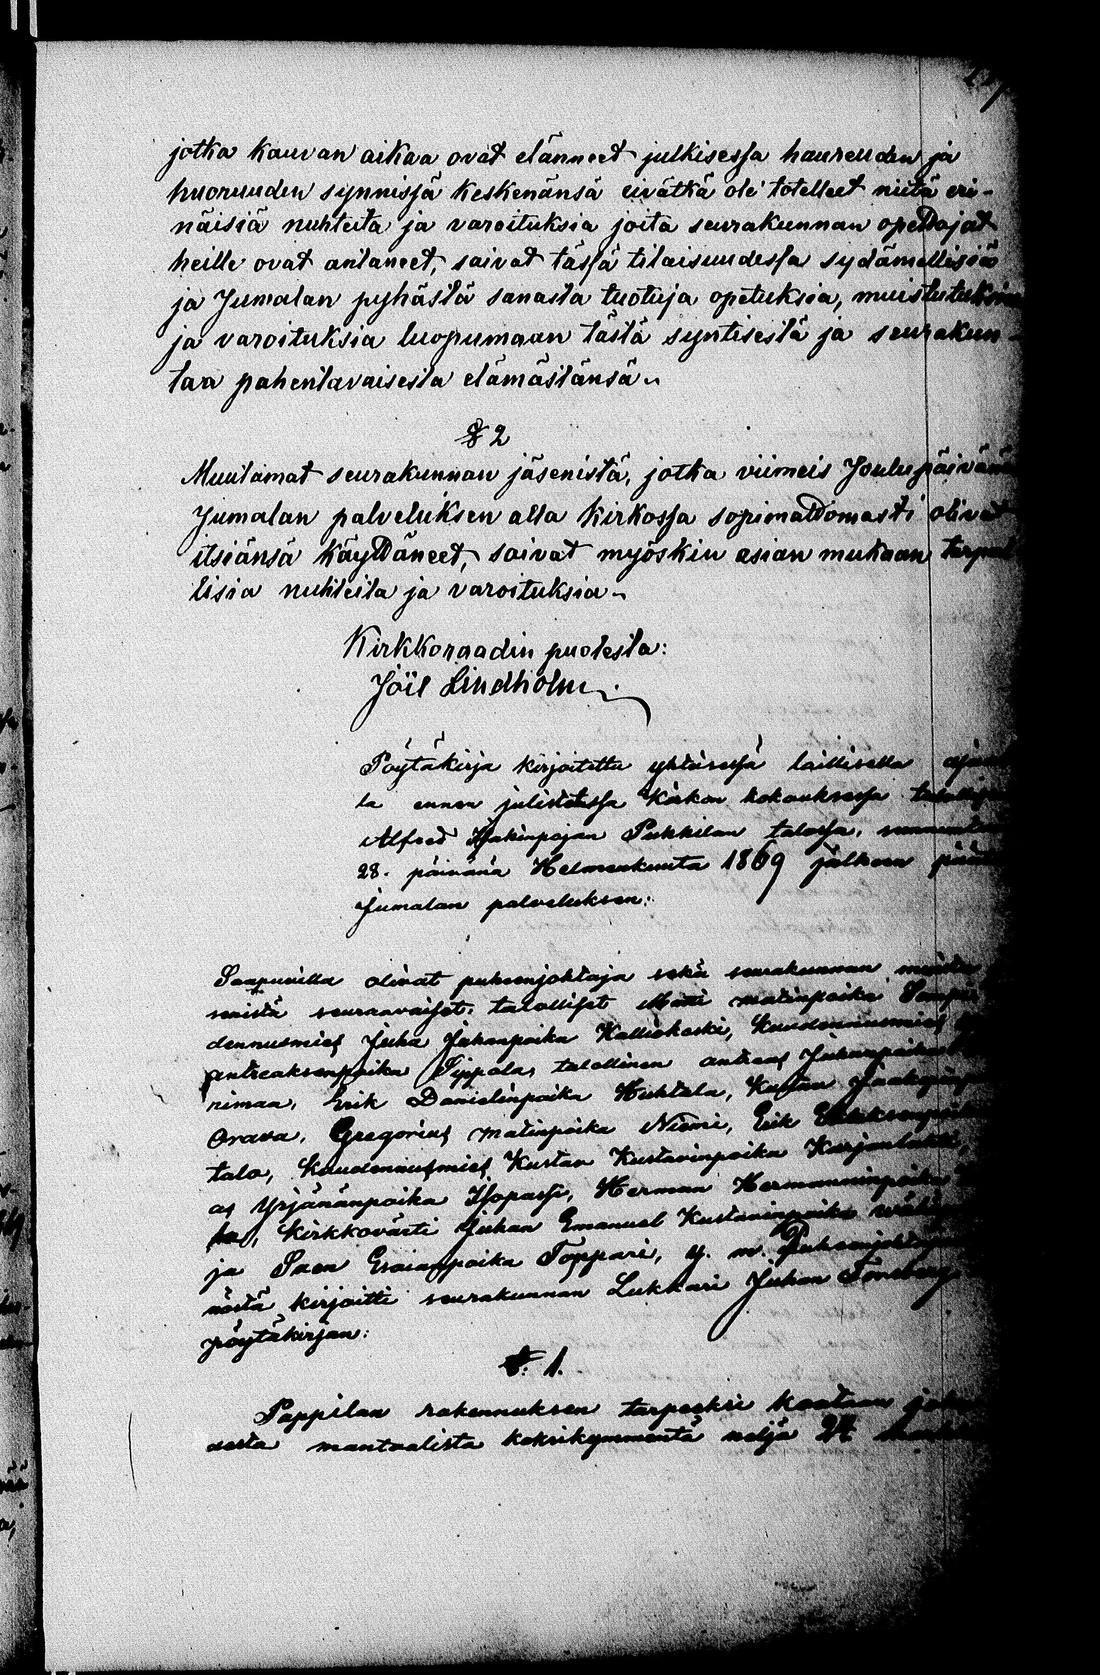 jotka kauvan aikaa ovat elänneet julkisessa haureuden ja
huoruuden synnissä keskenänsä eivätkä ole totelleet niitä eri-
näisiä nuhteita ja varoituksia joita seurakunnan opettajat
heille ovat antaneet, saivat tässä tilaisuudessa sydämellisiä
ja Jumalan pyhästä sanasta tuotuja opetuksia, muistutuksia
ja varoituksia luopumaan tästä syntisestä ja seurakun-
taa pahentavaisesta elämästänsä.
§ 2
Muutamat seurakunnan jäsenistä, jotka viimeis Joulupäivänä
Jumalan palveluksen alla kirkossa sopimattomasti olivat
itsiänsä käyttäneet, saivat myöskin asian mukaan
lisia nuhteita ja varoituksia.
Kirkkoraadin puolesta:
Joël Lindholm.
Pöytäkirja kirjoitettu yhteisessä laillisella
la ennen julistetussa Kirkon kokouksessa
Alfred Isakinpojan Pukkilan talossa,
28. päivänä Helmenkuuta 1869 jälkeen
Jumalan palveluksen:
Saapuvilla olivat puheenjohtaja sekä seurakunnan
senistä seuraavaiset: talolliset Matti Matinpoika
dennusmies Juha Juhanpoika Kalliokoski, Kuudennusmies
Antreaksenpoika Sippola, talollinen Antreas Juhanpoika
rimaa, Erik Danielinpoika Huhtala, Kustav
Orava, Gregorius Matinpoika Niemi, Erik
talo, Kuudennusmies Kustav Kustavinpoika Karjanlahti,
as Yrjänänpoika Isopassi, Herman Hermanninpoika
Kirkkovärti Juhan Emanuel Kustavinpoika
ja Saen Esaianpoika Toppari, y. m. Puheenjohtajan
nöstä kirjoitti seurakunnan Lukkari Juhan Töneberg
pöytäkirjan:
§. 1.
Pappilan rakennuksen tarpeeksi kaataan
desta mantaalista kaksikymmentä neljä 24